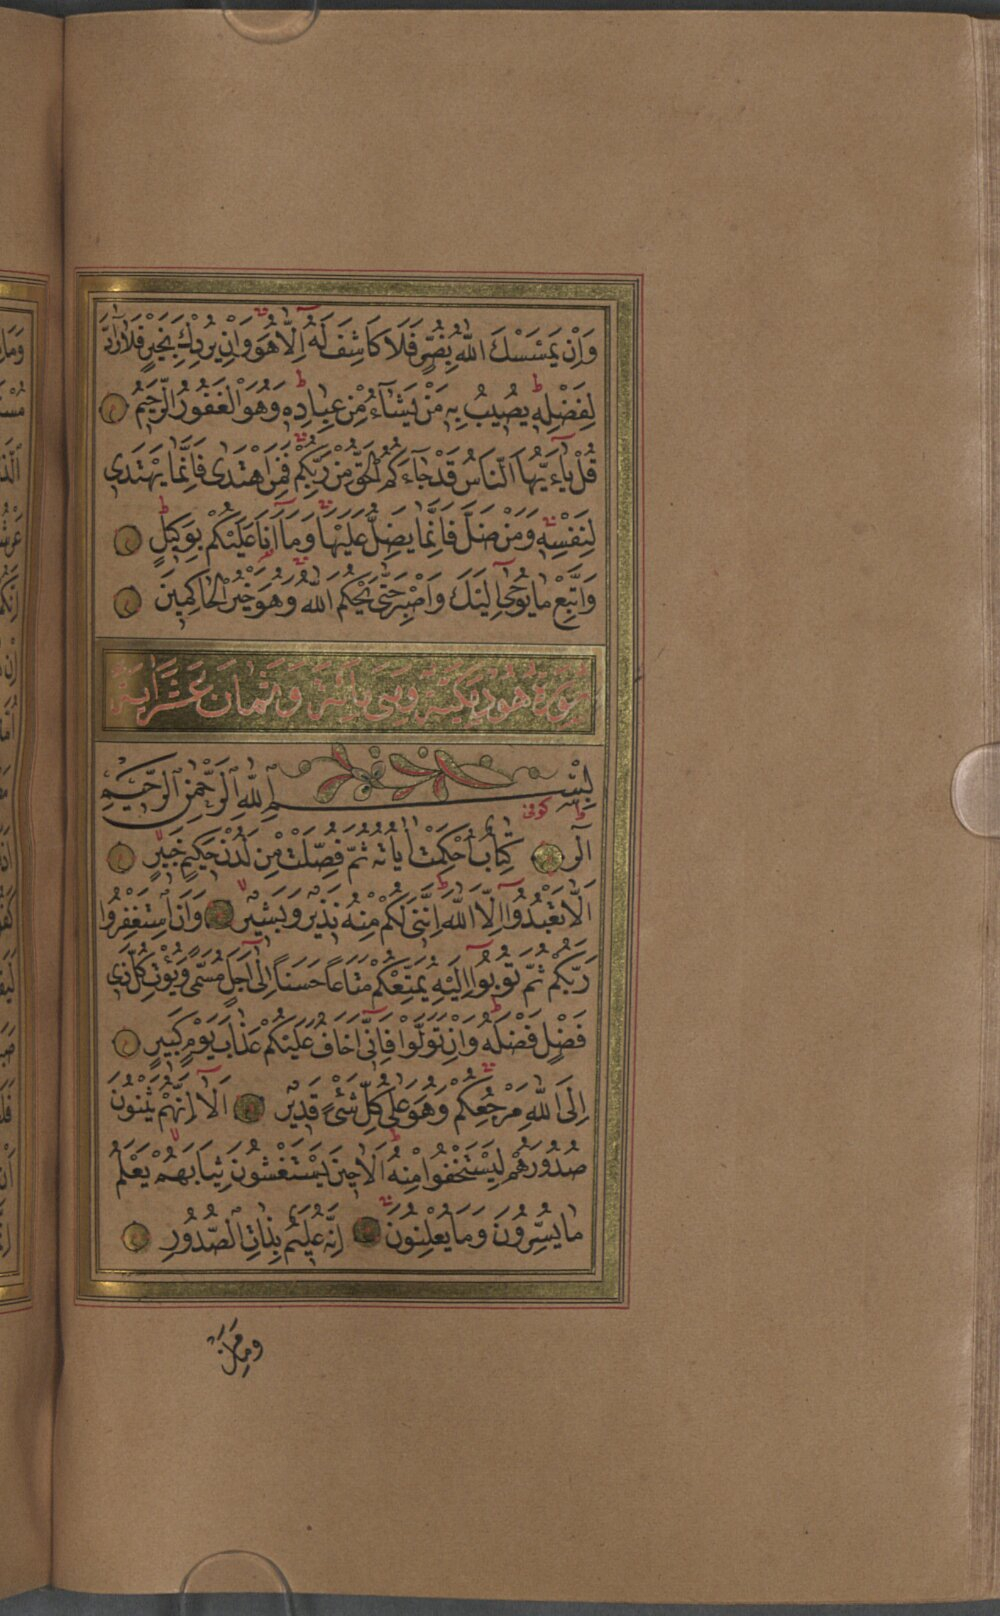 وَاِنْ يَمْسَسْكَ اللّٰهُ بِضُرٍّ فَلَا كَاشِفَ لَهُٓ اِلَّا هُوَ وَاِنْ يُرِدْكَ بِخَيْرٍ فَلَا رَآدَّ
لِفَضْلِهٖ يُصِيبُ بِهٖ مَنْ يَشَآءُ مِنْ عِبَادِهٖ وَهُوَ الْغَفُورُ الرَّحِيمُ
قُلْ يَاءَيُّهَا النَّاسُ قَدْ جَآءَكُمُ الْحَقُّ مِنْ رَبِّكُمْ فَمَنِ اهْتَدٰى فَاِنَّمَا يَهْتَدِى
لِنَفْسِهٖ وَمَنْ ضَلَّ فَاِنَّمَا يَضِلُّ عَلَيْهَا وَمَآ اَنَا عَلَيْكُمْ بِوَكِيلٍ
وَاتَّبِعْ مَا يُوحٰٓى اِلَيْكَ وَاصْبِرْ حَتّٰى يَحْكُمَ اللّٰهُ وَهُوَ خَيْرُ الْحَاكِمِينَ
سُورَةُ هُودٍ مَكِّيَّةٌ وَهِىَ مِائَةٌ وَثَمَانَ عَشَرَ اٰيَةً
بِسْمِ اللّٰهِ الرَّحْمٰنِ الرَّحِيمِ
كوفى
الٓرٰ كِتَابٌ اُحْكِمَتْ اٰيَاتُهُ ثُمَّ فُصِّلَتْ مِنْ لَدُنْ حَكِيمٍ خَبِيرٍ
اَلَّا تَعْبُدُوٓا اِلَّا اللّٰهَ اِنَّنِى لَكُمْ مِنْهُ نَذِيرٌ وَبَشِيرٌ وَاَنِ اسْتَغْفِرُوا
رَبَّكُمْ ثُمَّ تُوبُوٓا اِلَيْهِ يُمَتِّعْكُمْ مَتَاعًا حَسَنًا اِلٰٓى اَجَلٍ مُسَمًّى وَيُؤْتِ كُلَّ ذِى
فَضْلٍ فَضْلَهُ وَاِنْ تَوَلَّوْا فَاِنِّٓى اَخَافُ عَلَيْكُمْ عَذَابَ يَوْمٍ كَبِيرٍ
اِلَى اللّٰهِ مَرْجِعُكُمْ وَهُوَ عَلٰى كُلِّ شَىْءٍ قَدِيرٌ اَلَآ اِنَّهُمْ يَثْنُونَ
صُدُورَهُمْ لِيَسْتَخْفُوا مِنْهُ اَلَا حِينَ يَسْتَغْشُونَ ثِيَابَهُمْ يَعْلَمُ
مَا يُسِرُّونَ وَمَا يُعْلِنُونَ اِنَّهُ عَلِيمٌ بِذَاتِ الصُّدُورِ
وَمَا مِنْ